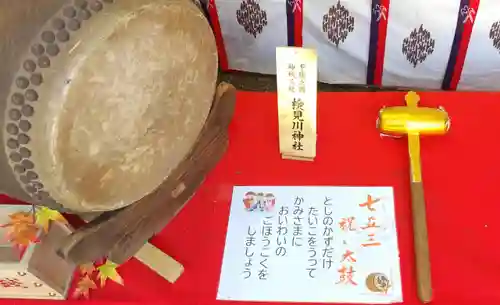 千葉之国
神祇三社
検見川神社
七五三
祝い太鼓
としのかずだけ
たいこをうって
かみさまに
おいわいの
ごほうこくを
しましょう